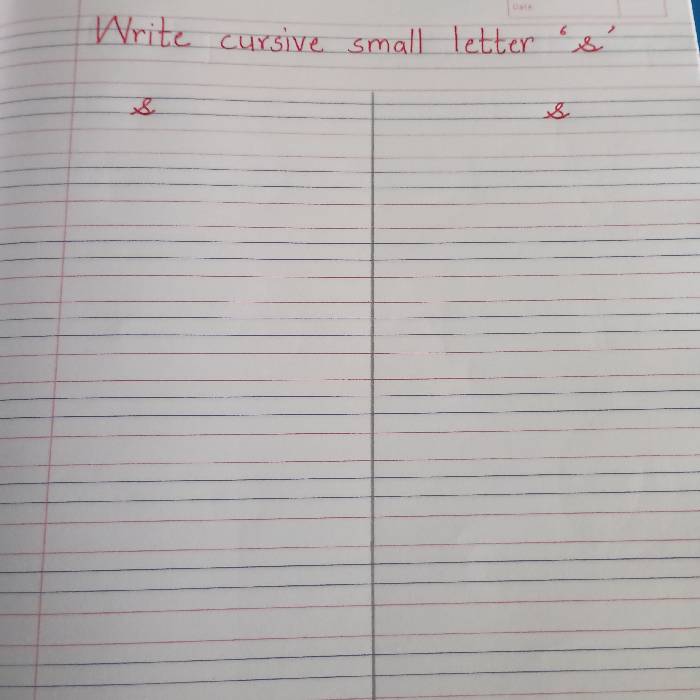 Date
Write cursive small letter ‘s’
s s